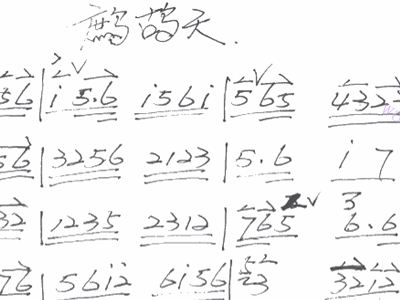 鹧鸪天.
56 | i 5.6 i56i | 565 4323
56 | 3256 2123 | 5.6 i 7
32 | 1235 2312 | 765 3 6.6
76 | 56i2 6i56 | 23 3212